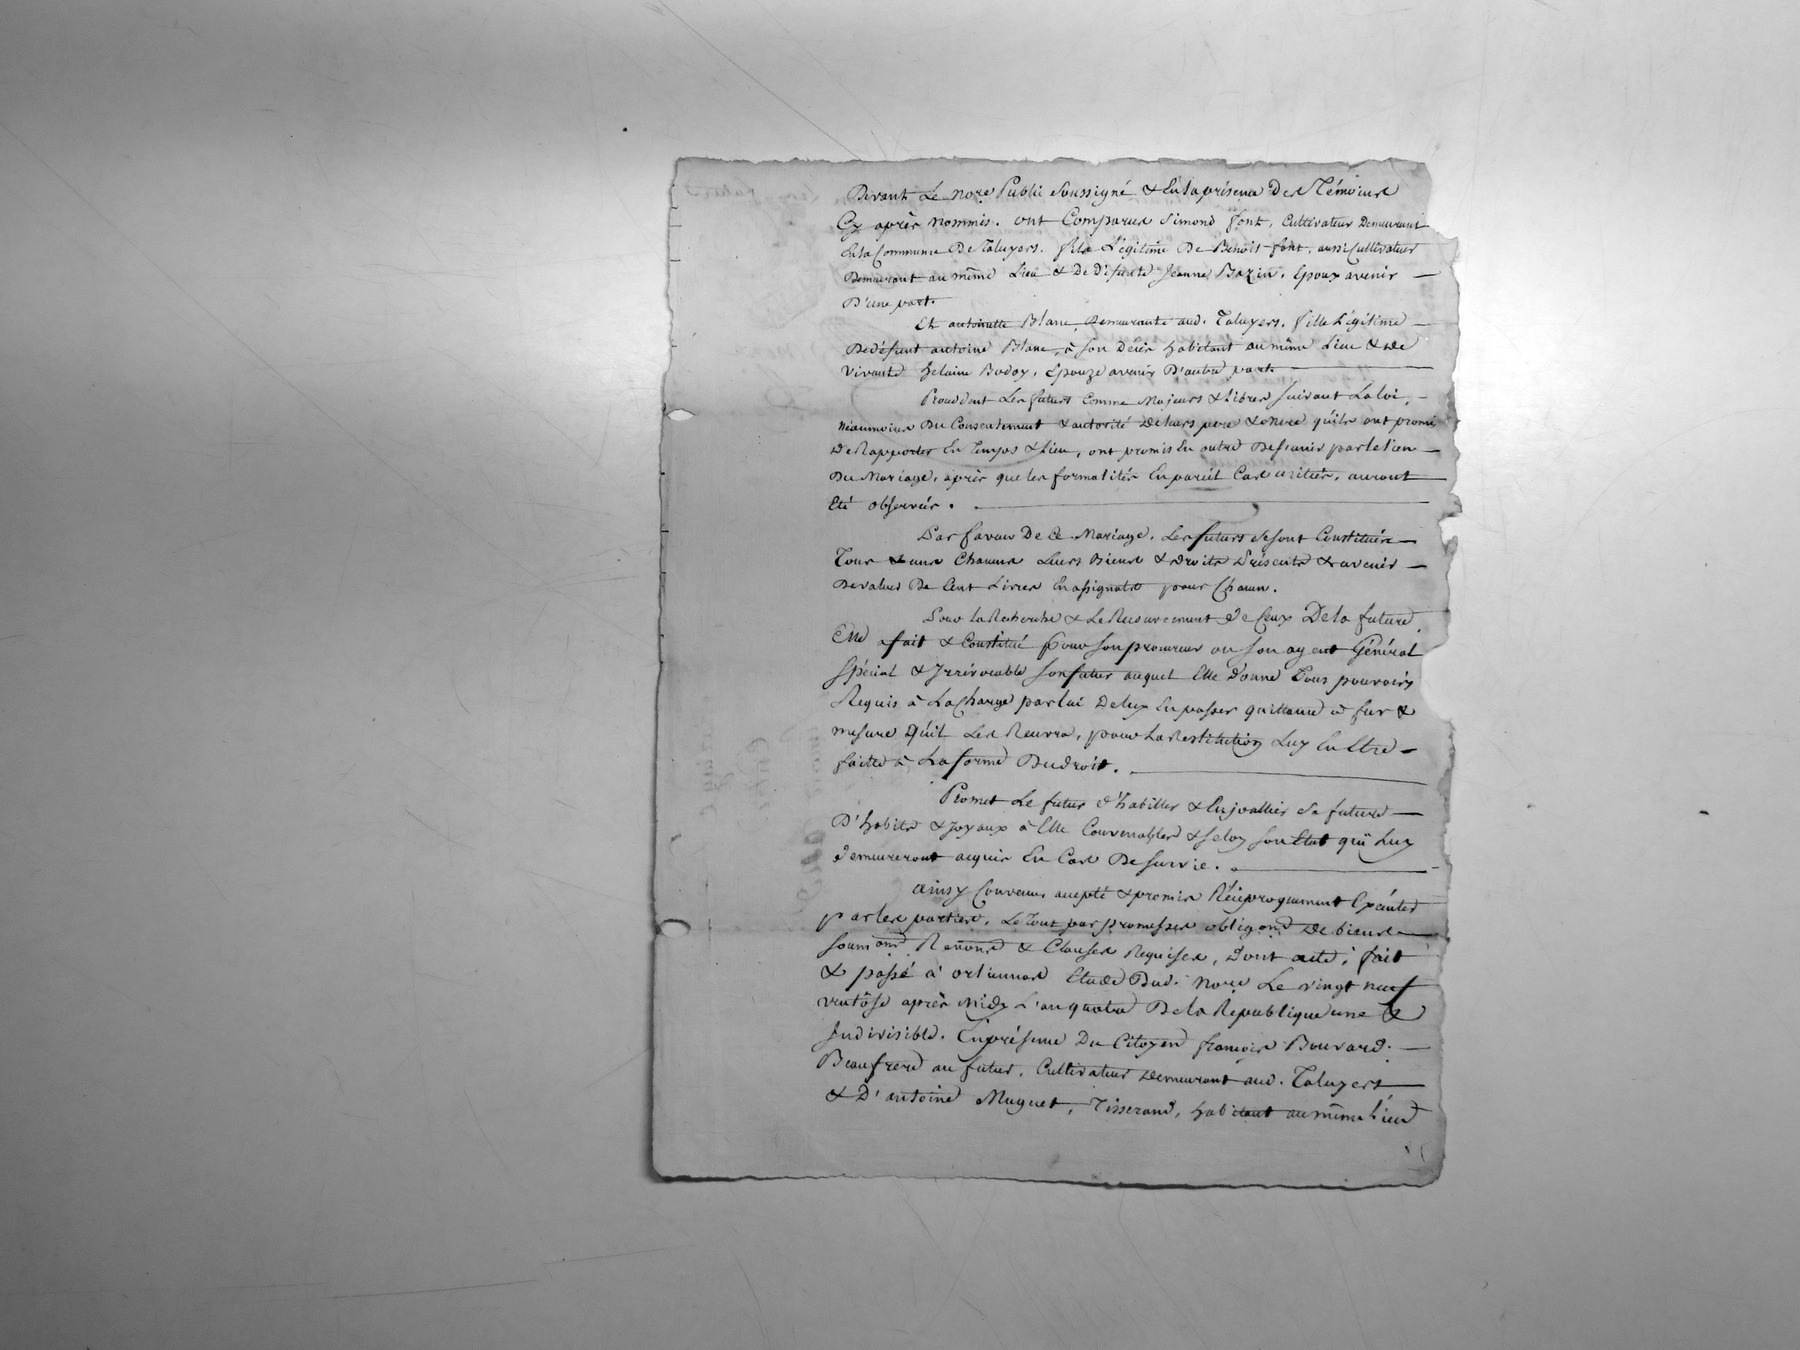 Devant Le no.re Public soussigné & En la présence Des Témoins
Cy après Nommés. ont Comparus Simond font, Cultivateur Demeurant
En la Commune De Taluyers. fils Légitime De Benoit font, aussi Cultivateur
Demeurant au même Lieu & De Défunte Jeanne Bazin, Epoux avenir —
D'une part.
Et antoinette Blanc, Demeurante aud. Taluyers. fille Légitime —
De défunt antoine Blanc, à son Décès habitant au même Lieu & de
vivante Helaine Bodoy, Epouze avenir D'autre part. —
Procédant Les futurs Comme Majeurs & Libres suivant La loi, —
néanmoins Du Consentement & autorité De Leurs père & mère qu'ils ont promis
De Rapporter En Temps & Lieu, ont promis En outre De s'unir par le lien —
Du Mariage, après que les formalités En pareil Cas usitées, auront
Eté observées. —
Par faveur De ce Mariage, Les futurs se sont Constitués —
Tous & uns Chacuns Leurs Biens & droits Présents & avenir —
De valeur De Cent Livres En assignats pour Chacun.
Pour la Recherche & Le Recouvrement de Ceux De la future,
Elle a fait & Constitué pour son procureur ou son agent Général
Spécial & Irrévocable son futur auquel Elle donne Tous pouvoirs
Requis à La Charge par lui De Leux En passer quittance à fur &
mesure Qu'il Les Recevra, pour La Restitution Luy En Etre —
faite à La forme Du droit. —
Promet Le futur d'habiller & Enjoallier Sa future —
D'habits & Joyaux à Elle Convenables & selon son Etat qui Luy
demeureront acquis En Cas De survie. —
ainsy Convenu, accepté & promis Réciproquement Exécuter
par les parties, Le Tout par promesses obligon.s De biens —
soumi.ons Renon.s & Clauses Requises, dont acte, fait
& passé à orliennas Etude Dud. No.re Le vingt neuf
ventôse après midy L'an quatre De la République une &
Indivisible. En présence Du Citoyen françois Bouvard. —
Beaufrere au futur, Cultivateur Demeurant aud. Taluyers —
& D'antoine Muguet, Tisserand, habitant au même Lieu